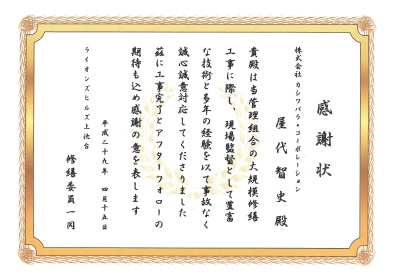 感謝状
株式会社 カシワバラ・コーポレーション
屋代智史殿
貴殿は当管理組合の大規模修繕
工事に際し、現場監督として豊富
な技術と多年の経験を以て事故なく
誠心誠意対応してくださりました
茲に工事完了とアフターフォローの
期待も込め感謝の意を表します
平成二十九年 四月十五日
ライオンズヒルズ上池台
修繕委員一同